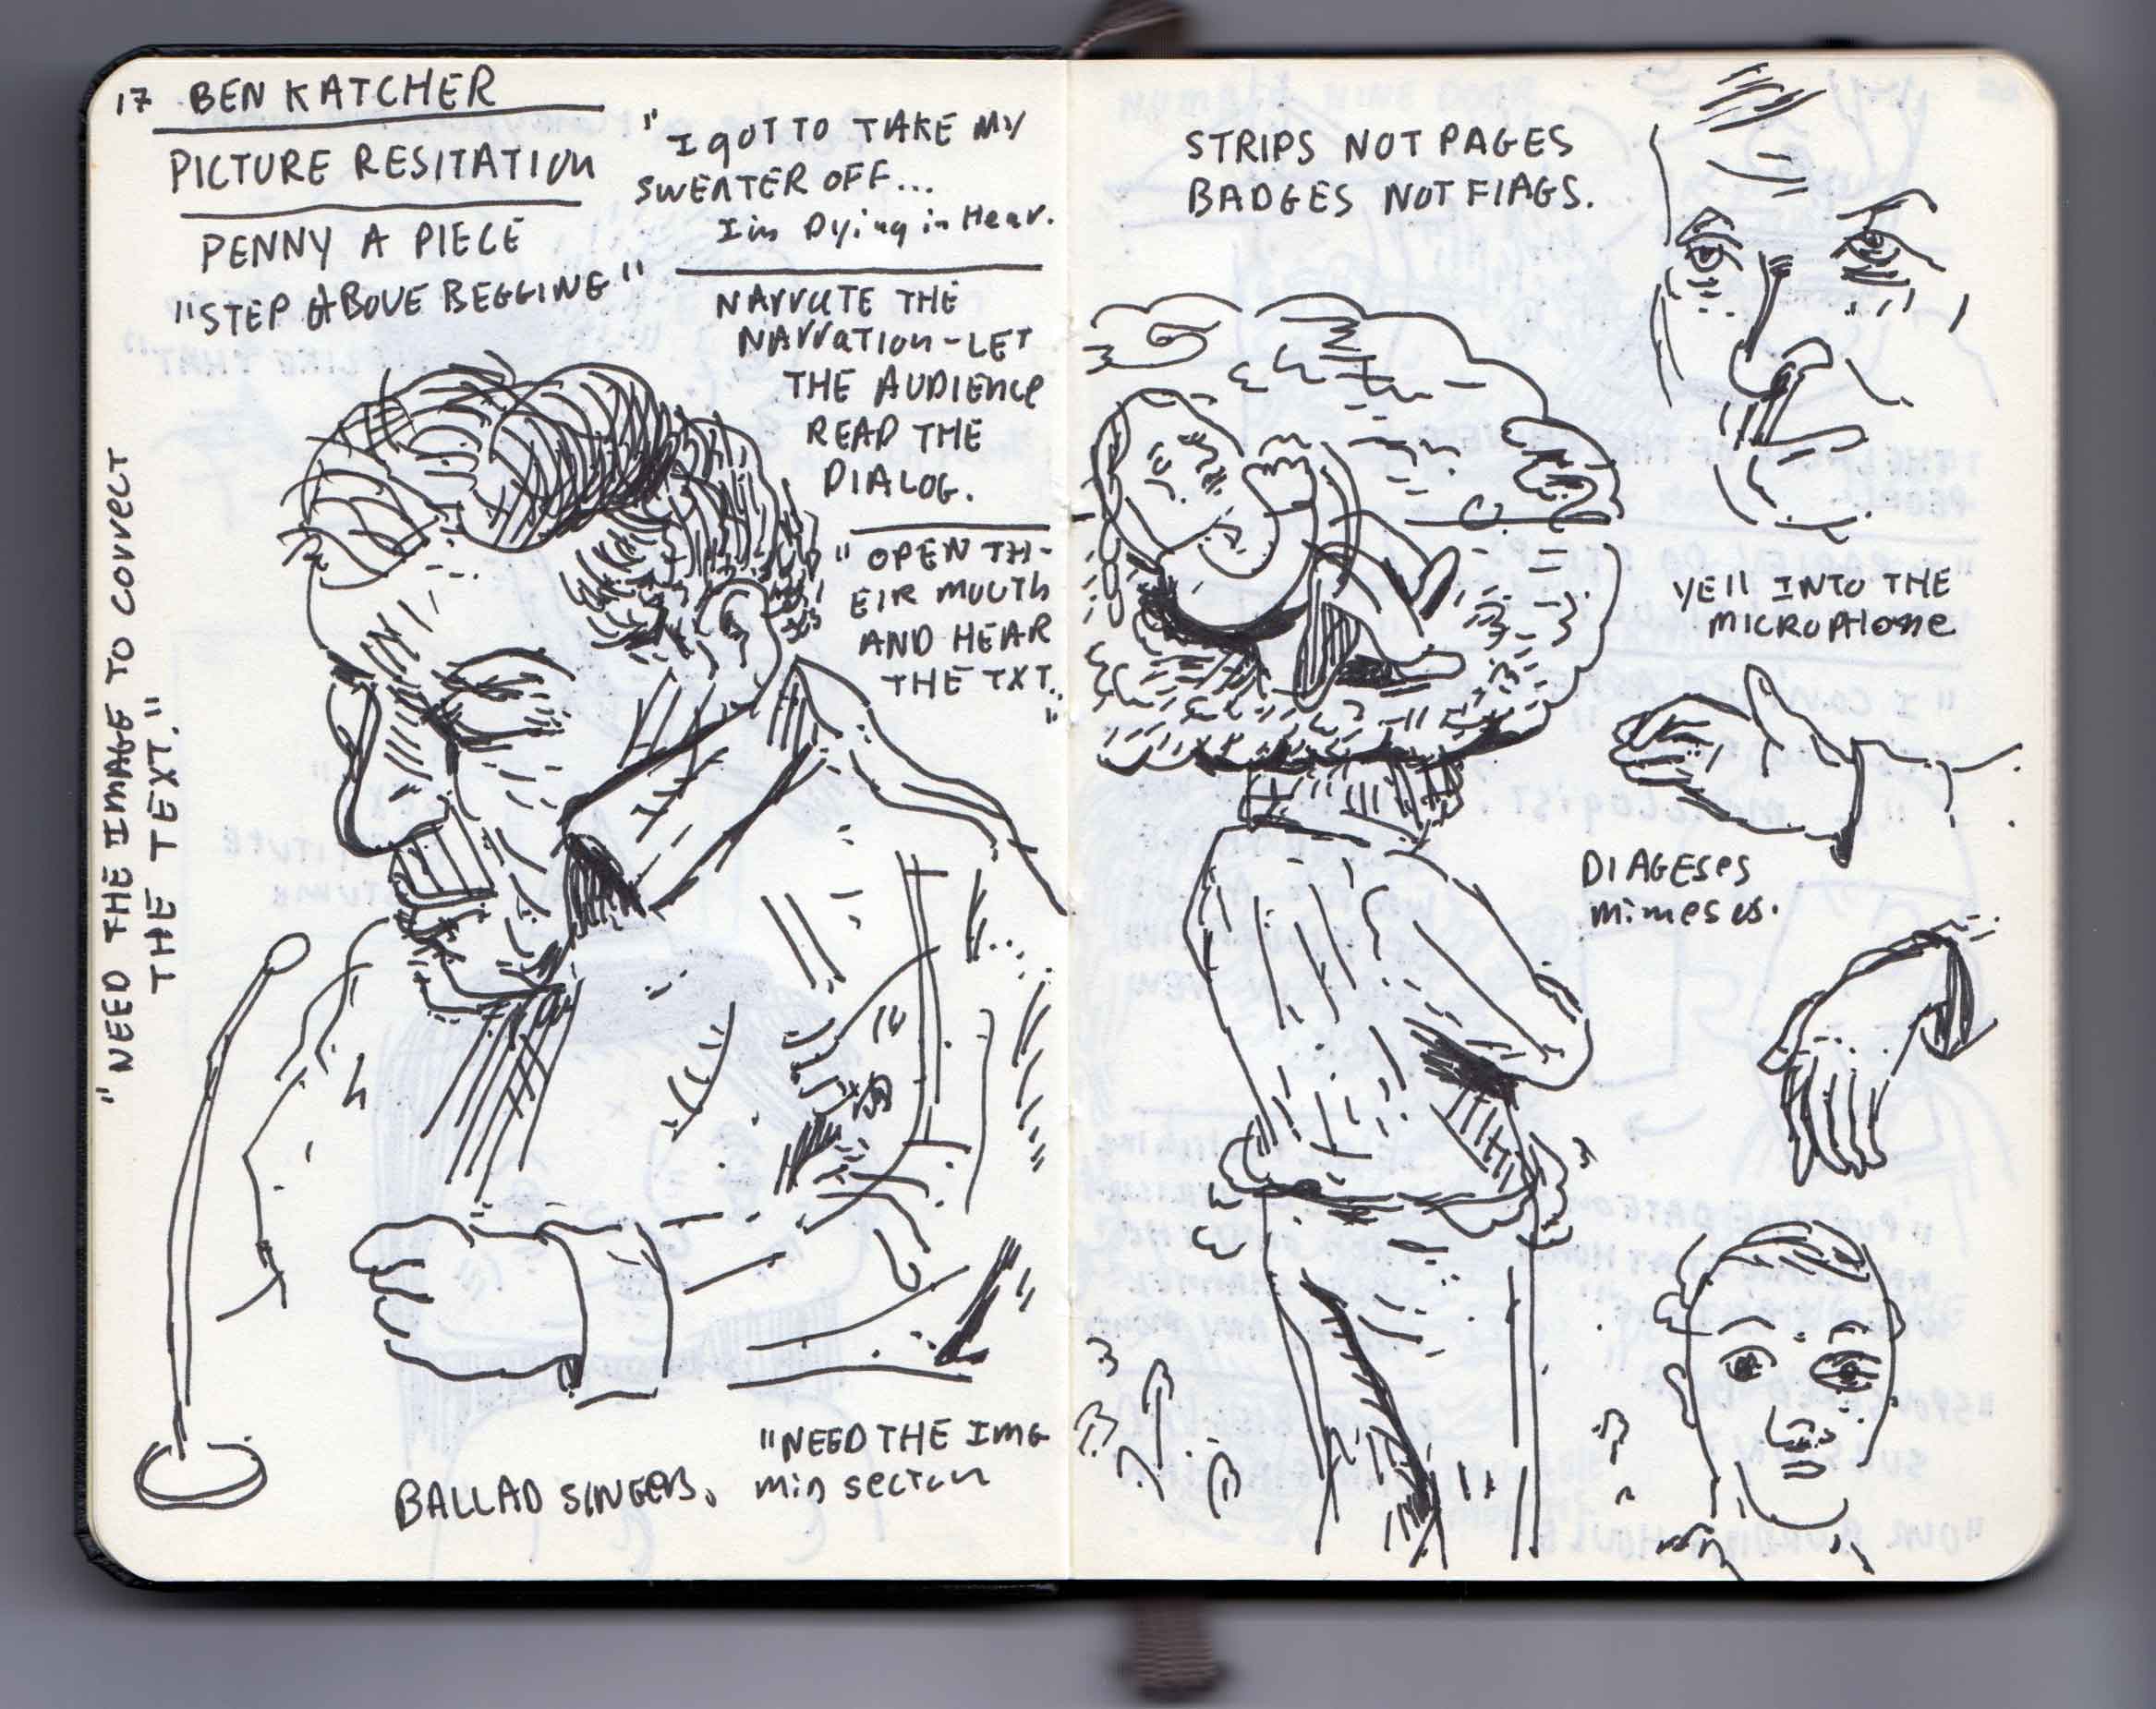 17 BEN KATCHER
PICTURE RESITATION
PENNY A PIECE
"STEP ABOVE BEGGING"
"I gOT TO TAKE MY
SWEATER OFF...
I'm Dying in Hear.
NArrate THE
NArration-LET
THE AUDIENCe
READ THE
DIALOG.
"OPEN TH-
EIR MOUTh
AND HEAR
THE TXT."
"NEED THE IMAGE TO COrrECT
THE TEXT."
BALLAD SINGERS.
"NEED THE Img
min
STRIPS NOT PAGES
BADGES NOT FlAGS.
YEll INTO THE
MICROPHone
DIAGESES
mimesis.